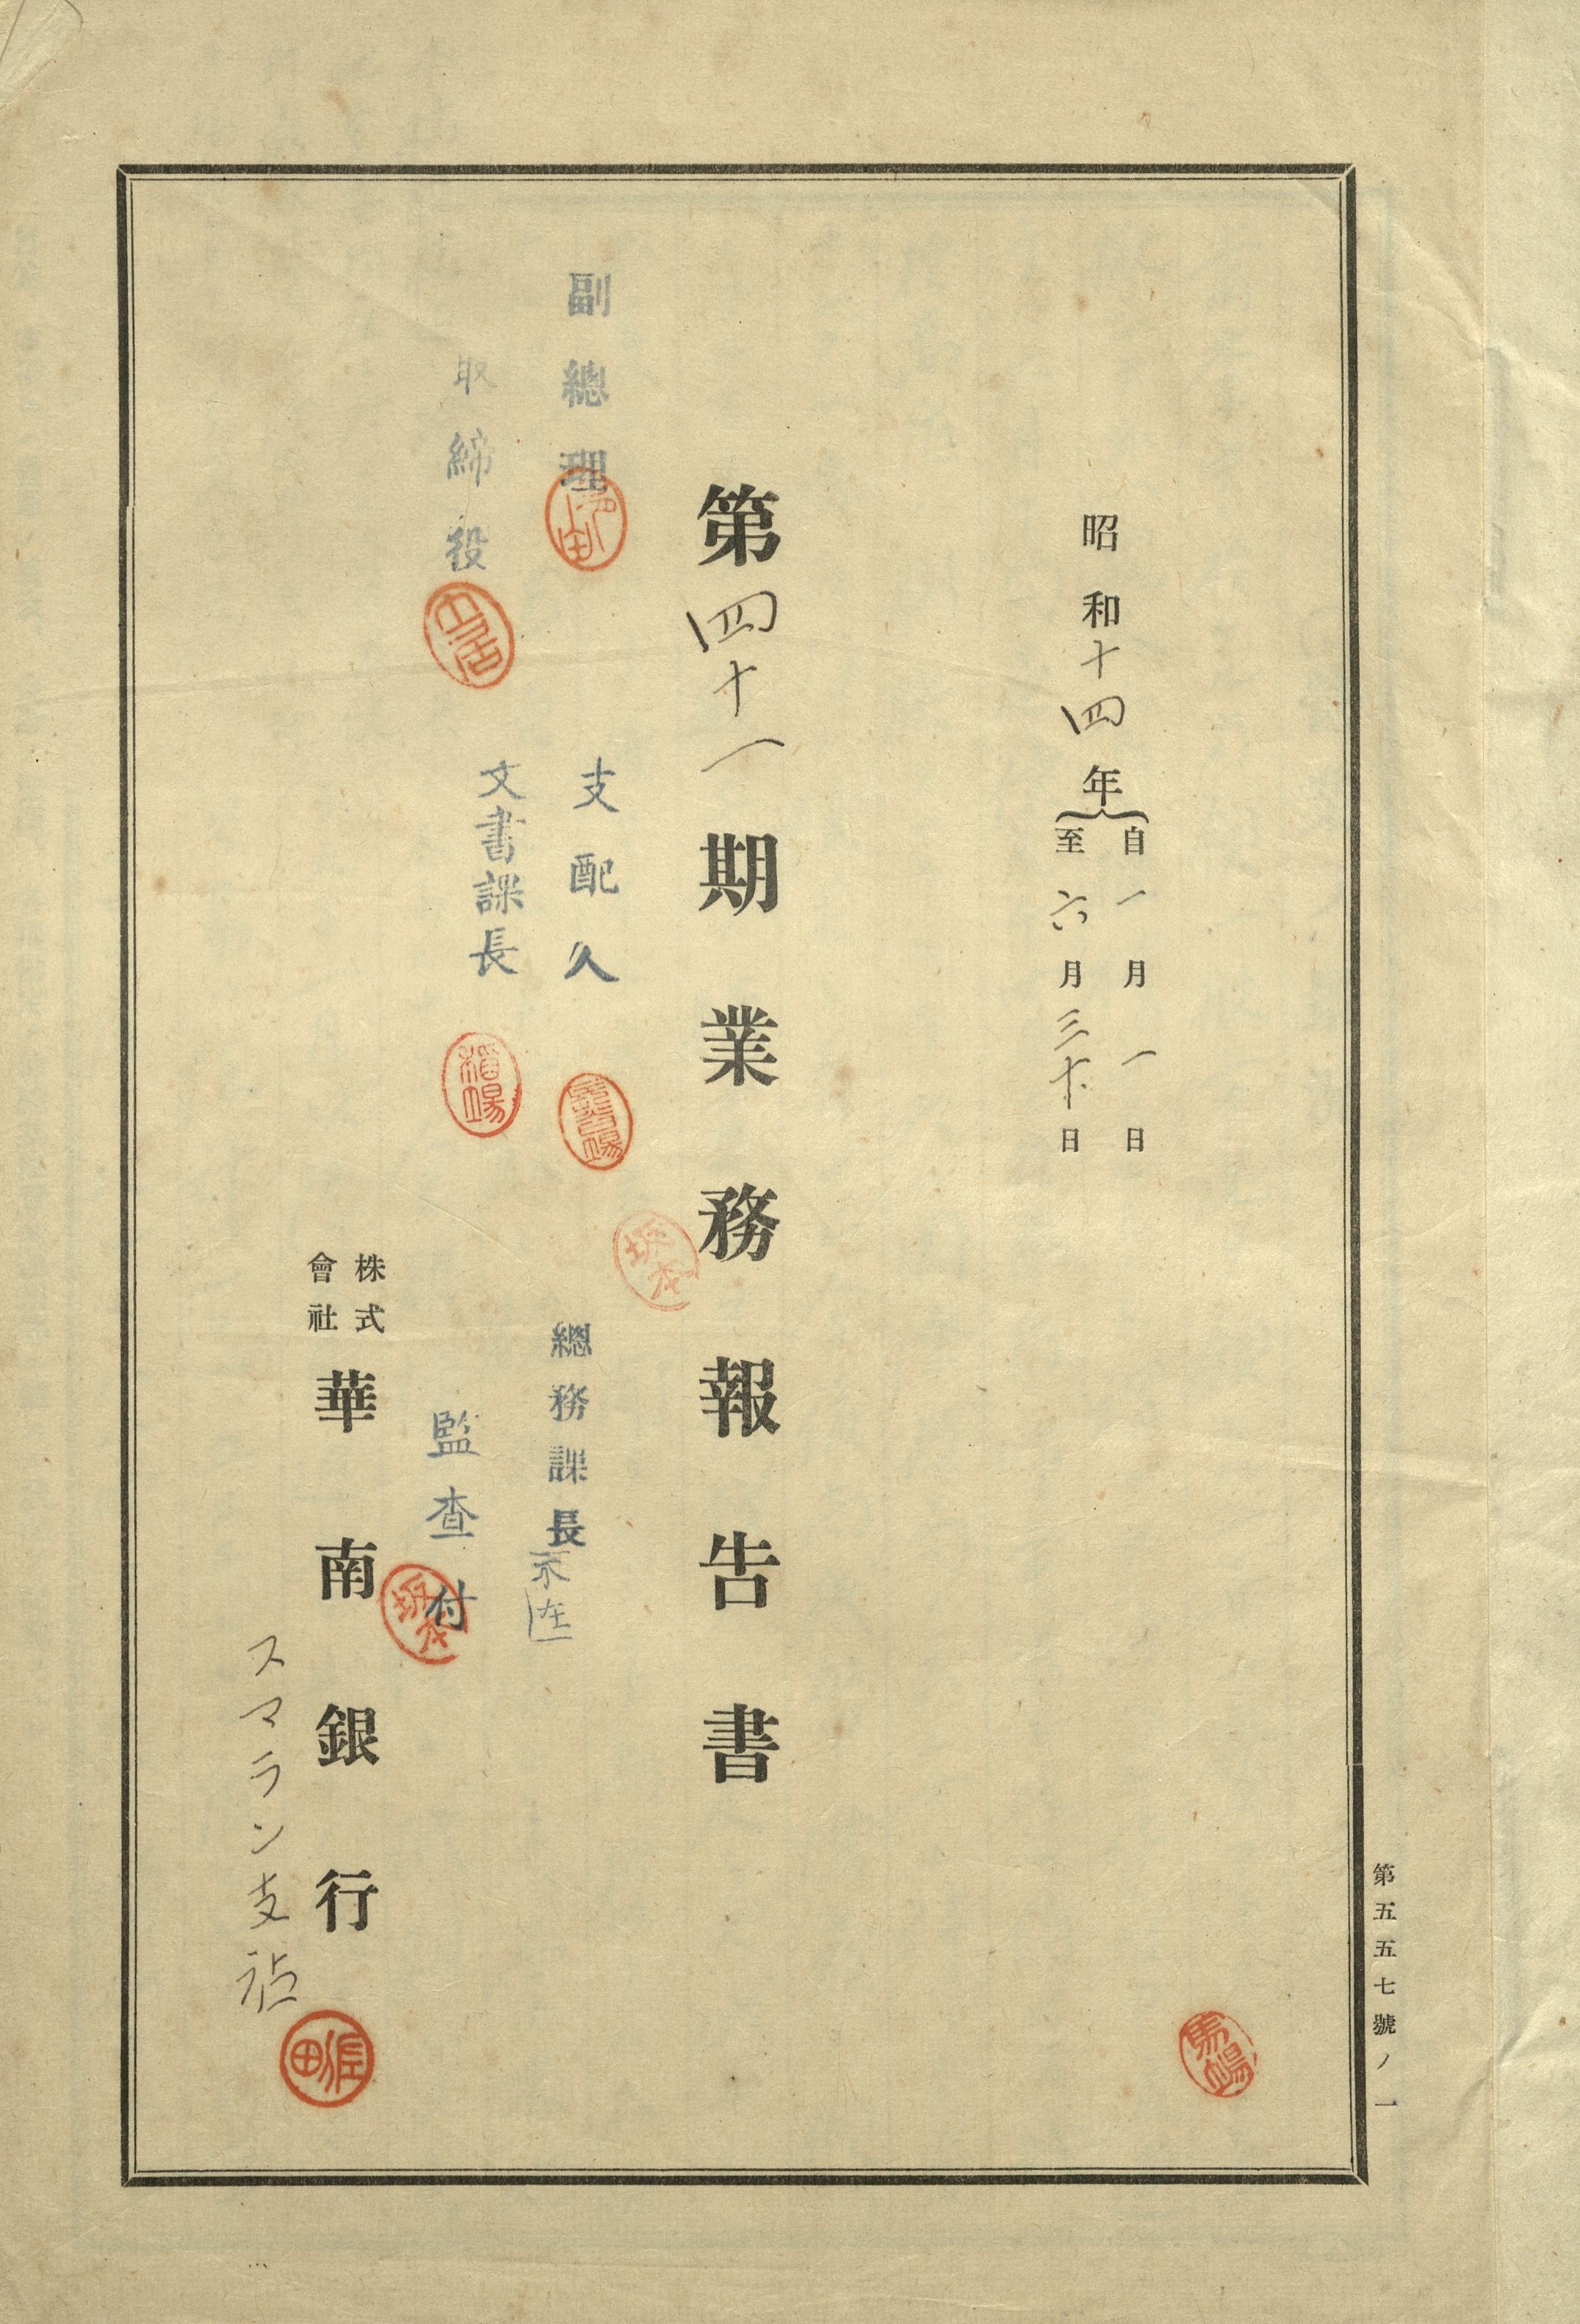 第五五七號ノ一
昭和十四年
自一月一日
至六月三十日
第四十一期業務報告書
副總理
取締役
支配人
文書課長
稻場
總務課長
不在
監査付
坂本
坂本
株式會社
華南銀行
スマラン支店
馬場